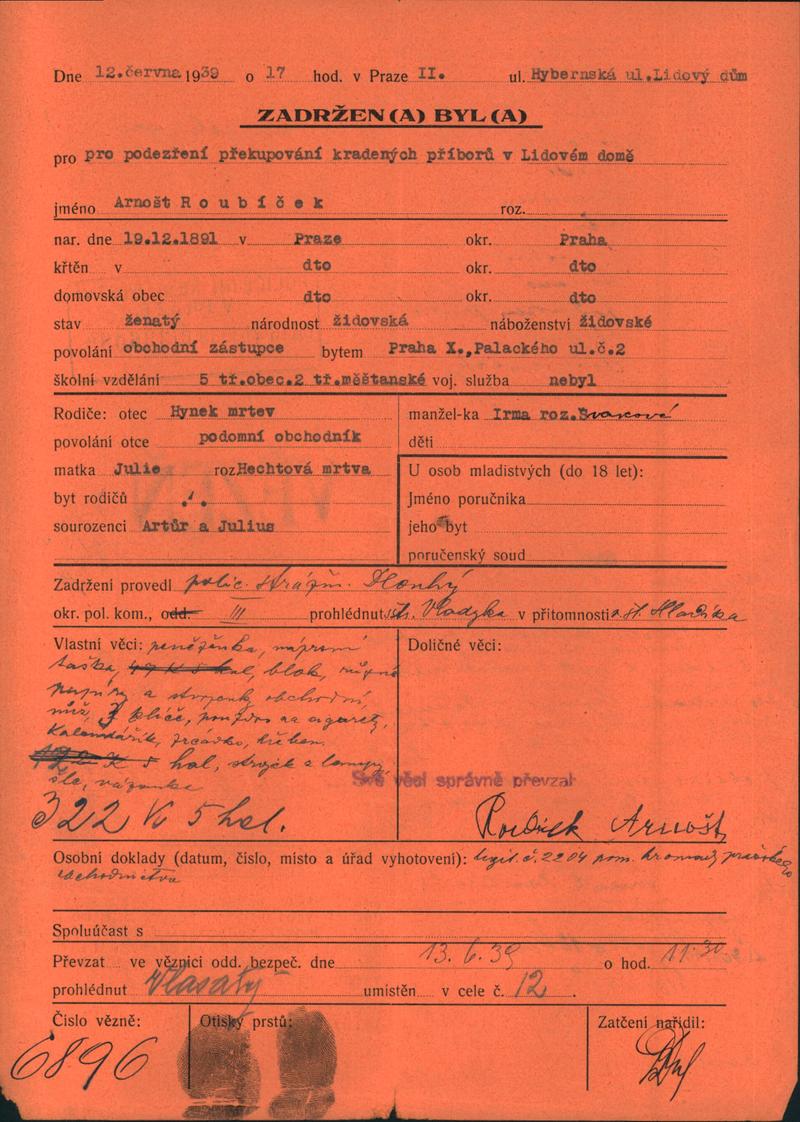 Dne 12.června 1939 o 17 hod. v Praze II. ul. Hybernská ul.Lidový dům
ZADRŽEN(A) BYL(A)
pro pro podezření překupování kradených příborů v Lidovém domě
jméno Arnošt Roubíček roz.
nar. dne 19.12.1891 v Praze okr. Praha
křtěn v dto okr. dto
domovská obec dto okr. dto
stav ženatý národnost židovská náboženství židovské
povolání obchodní zástupce bytem Praha X.,Palackého ul.č.2
školní vzdělání 5 tř.obec.2 tř.měštanské voj. služba nebyl
Rodiče: otec Hynek mrtev
povolání otce podomní obchodník
matka Julie roz Hechtová mrtva
byt rodičů ./.
sourozenci Artůr a Julius
manžel-ka Irma roz.
děti
U osob mladistvých (do 18 let):
Jméno poručníka
jeho byt
poručenský soud
Zadržení provedl polic. strážm. Dlouhý
okr. pol. kom., odd. III prohlédnut Vladyka v přítomnosti
Vlastní věci: peněženka, náprsní
taška, blok, různé
papíry a obchodní,
nůž, 3 klíče, pouzdro na cigarety,
kalendářík, zrcádko, hřeben
5 hal, strojek
šle, vázanka
322 K 5 hal.
Doličné věci:
Své věci správně převzal
Roubíček Arnošt
Osobní doklady (datum, číslo, místo a úřad vyhotovení): legit. č. 2204 pražského
obchodnictva
Spoluúčast s
Převzat ve věznici odd. bezpeč. dne 13. 6. 39 o hod. 11·30
prohlédnut Vlasatý umístěn v cele č. 12.
Číslo vězně: Otisky prstů: Zatčení nařídil:
6896